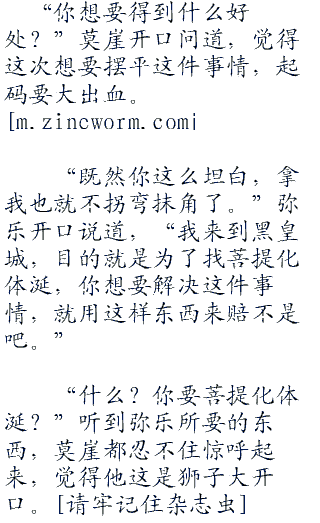 “你想要得到什么好
处？”莫崖开口问道，觉得
这次想要摆平这件事情，起
码要大出血。
[m.zincworm.com|
“既然你这么坦白，拿
我也就不拐弯抹角了。”弥
乐开口说道，“我来到黑皇
城，目的就是为了找菩提化
体涎，你想要解决这件事
情，就用这样东西来赔不是
吧。”
“什么？你要菩提化体
涎？”听到弥乐所要的东
西，莫崖都忍不住惊呼起
来，觉得他这是狮子大开
口。[请牢记住杂志虫]